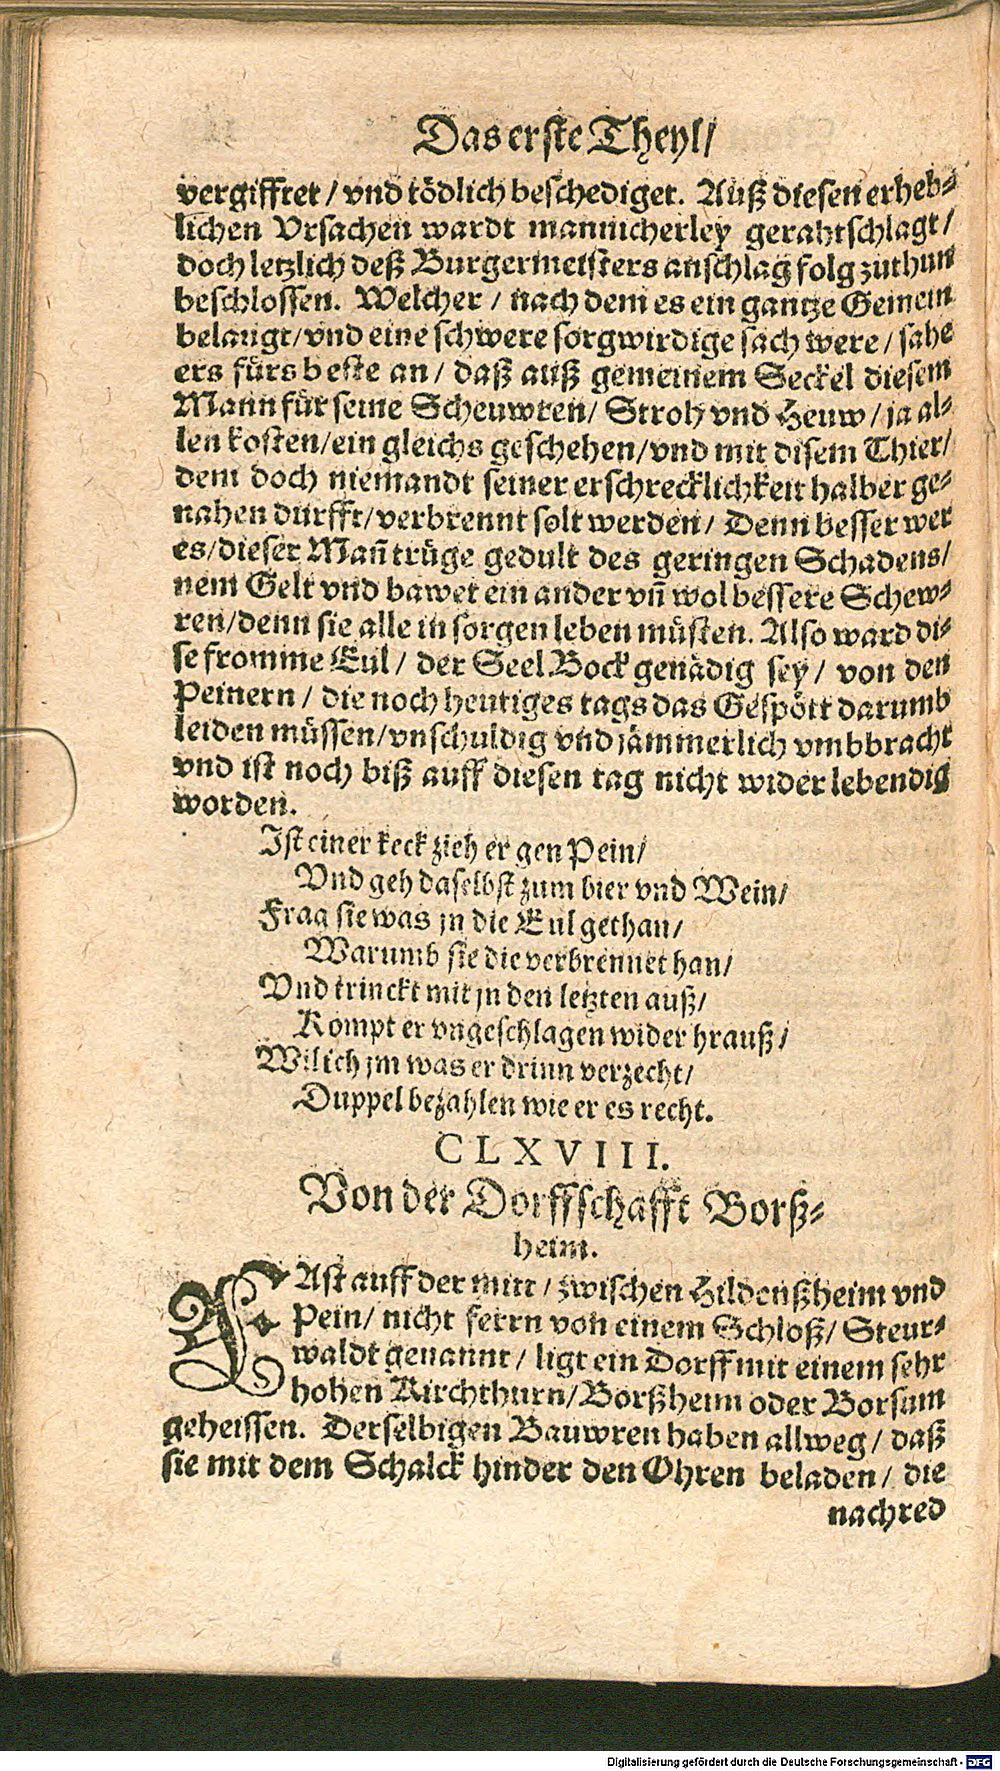 Das erste Theyl/
vergifftet / vnd tödlich beschediget. Auß diesen erheb-
lichen Vrsachen wardt mannicherley gerahtschlagt/
doch letzlich deß Burgermeisters anschlag folg zuthun
beschlossen. Welcher / nach dem es ein gantze Gemein
belangt/vnd eine schwere sorgwirdige sach were / sahe
ers fürs beste an / daß auß gemeinem Seckel diesem
Mann für seine Scheuwren/ Stroh vnd Heuw / ja al-
len kosten/ein gleichs geschehen/vnd mit disem Thier/
dem doch niemandt seiner erschrecklichkeit halber ge-
nahen dürfft/verbrennt solt werden/ Denn besser wer
es/dieser Mañ trüge gedult des geringen Schadens/
nem Gelt vnd bawet ein ander vñ wol bessere Schew-
ren/denn sie alle in sorgen leben müsten. Also ward di-
se fromme Eul / der Seel Bock genädig sey / von den
Peinern / die noch heutiges tags das Gespött darumb
leiden müssen/vnschuldig vnd jämmerlich vmbbracht
vnd ist noch biß auff diesen tag nicht wider lebendig
worden.
Ist einer keck zieh er gen Pein/
Vnd geh daselbst zum bier vnd Wein/
Frag sie was jn die Eul gethan/
Warumb sie die verbrennet han/
Vnd trinckt mit jn den letzten auß/
Kompt er vngeschlagen wider hrauß/
Wil ich jm was er drinn verzecht/
Duppel bezahlen wie er es recht.
CLXVIII.
Von der Dorffschafft Borß-
heim.
FAst auff der mitt / zwischen Hildenßheim vnd
Pein/ nicht ferrn von einem Schloß/ Steur-
waldt genannt / ligt ein Dorff mit einem sehr
hohen Kirchthurn/Borßheim oder Borsum
geheissen. Derselbigen Bauwren haben allweg / daß
sie mit dem Schalck hinder den Ohren beladen/ die
nachred
Digitalisierung gefördert durch die Deutsche Forschungsgemeinschaft - DFG